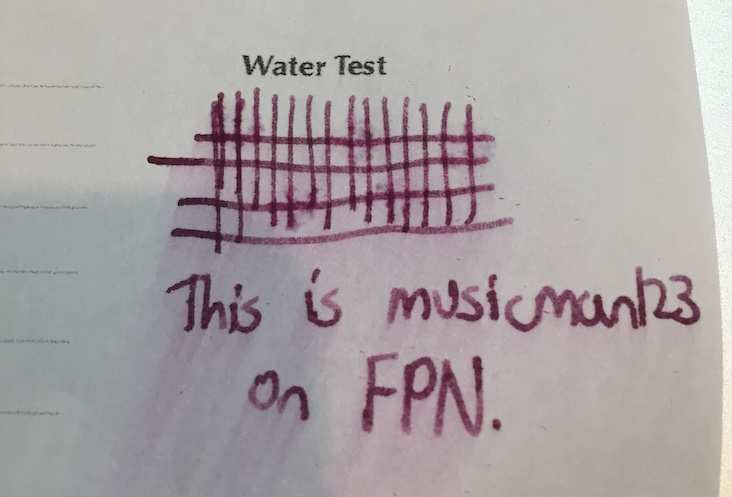 Water Test
This is musicman123
on FPN.